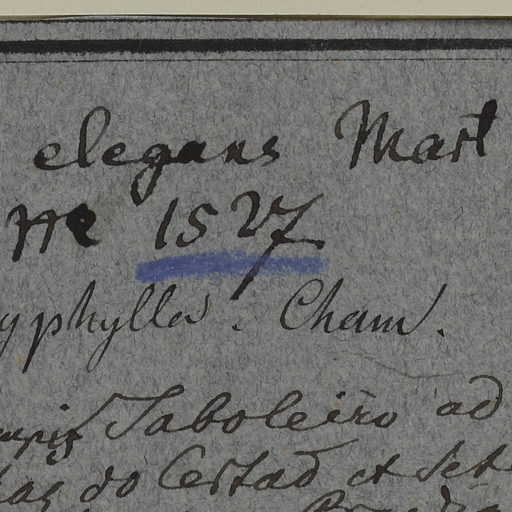 elegans Mart
No 1527
yphylla. Cham.
Taboleiro ad
do Certaõ et